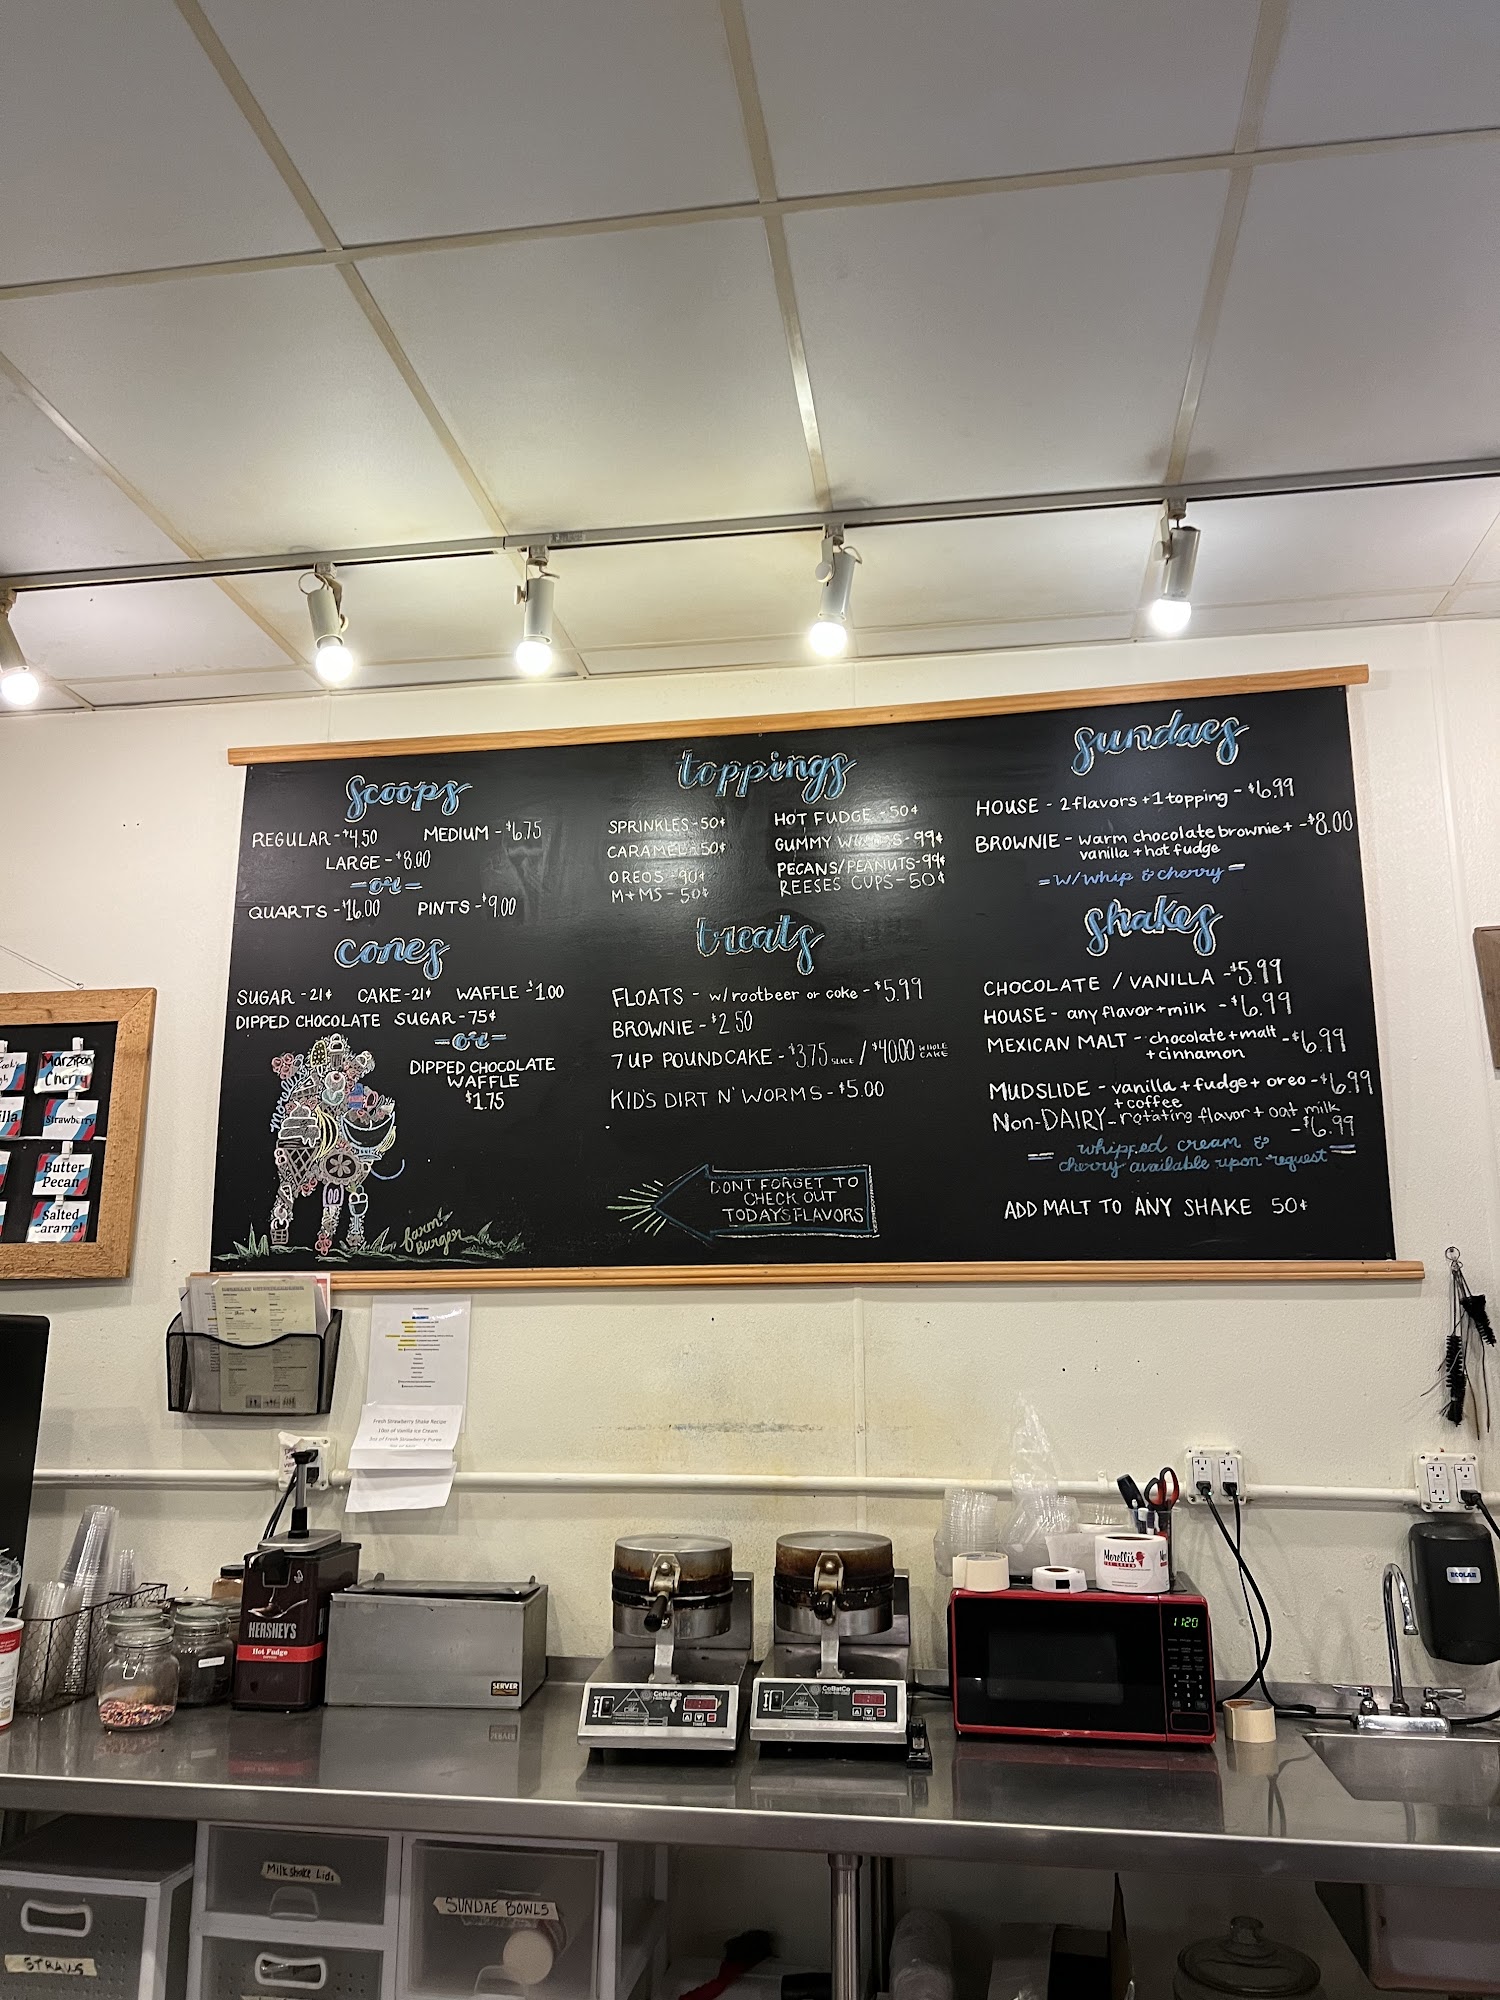 scoops
REGULAR - $4.50 MEDIUM - $6.75
LARGE - $8.00
- or -
QUARTS - $16.00 PINTS - $9.00
cones
SUGAR - 21¢ CAKE - 21¢ WAFFLE - $1.00
DIPPED CHOCOLATE SUGAR - 75¢
- or -
DIPPED CHOCOLATE
WAFFLE
$1.75
Morelli's
farm
Burger
toppings
SPRINKLES - 50¢
CARAMEL - 50¢
OREOS - 90¢
M+MS - 50¢
HOT FUDGE - 50¢
GUMMY - 99¢
PECANS/PEANUTS - 99¢
REESES CUPS - 50¢
treats
FLOATS - w/rootbeer or coke - $5.99
BROWNIE - $2.50
7 UP POUNDCAKE - $3.75 SLICE / $40.00 WHOLE CAKE
KID'S DIRT N' WORMS - $5.00
DONT FORGET TO
CHECK OUT
TODAYS FLAVORS
sundaes
HOUSE - 2 flavors + 1 topping - $6.99
BROWNIE - warm chocolate brownie + - $8.00
vanilla + hot fudge
= W/ whip & cherry =
shakes
CHOCOLATE / VANILLA - $5.99
HOUSE - any flavor + milk - $6.99
MEXICAN MALT - chocolate + malt - $6.99
+ cinnamon
MUDSLIDE - vanilla + fudge + oreo - $6.99
+ coffee
Non-DAIRY - rotating flavor + oat milk
- $6.99
= whipped cream & =
cherry available upon request
ADD MALT TO ANY SHAKE 50¢
Marzipan
Cherry
Strawberry
Butter
Pecan
Salted
Caramel
Fresh Strawberry Shake Recipe
10oz of Vanilla Ice Cream
3oz of Fresh Strawberry Puree
HERSHEY'S
Hot Fudge
SERVER
CoBatCo
TIMER
CoBatCo
TIMER
Morelli's
11:20
ECOLAB
Milkshake Lids
SUNDAE BOWLS
STRAWS